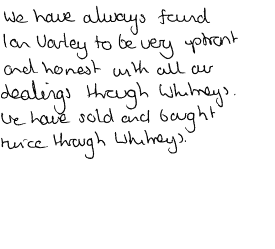 We have always found
Ian Varley to be very upfront
and honest with all our
dealings through Whitneys.
We have sold and bought
twice through Whitneys.